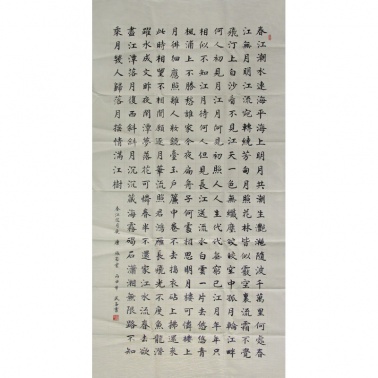 春江潮水連海平海上明月共潮生灩灩隨波千萬里何處春
江無月明江流宛轉繞芳甸月照花林皆似霰空裏流霜不覺
飛汀上白沙看不見江天一色無纖塵皎皎空中孤月輪江畔
何人初見月江月何年初照人人生代代無窮已江月年年只
相似不知江月待何人但見長江送流水白雲一片去悠悠青
楓浦上不勝愁誰家今夜扁舟子何處相思明月樓可憐樓上
月徘徊應照離人妝鏡臺玉戶簾中卷不去搗衣砧上拂還來
此時相望不相聞願逐月華流照君鴻雁長飛光不度魚龍潛
躍水成文昨夜閒潭夢落花可憐春半不還家江水流春去欲
盡江潭落月復西斜斜月沉沉藏海霧碣石瀟湘無限路不知
乘月幾人歸落月搖情滿江樹
春江花月夜 唐 張若虛